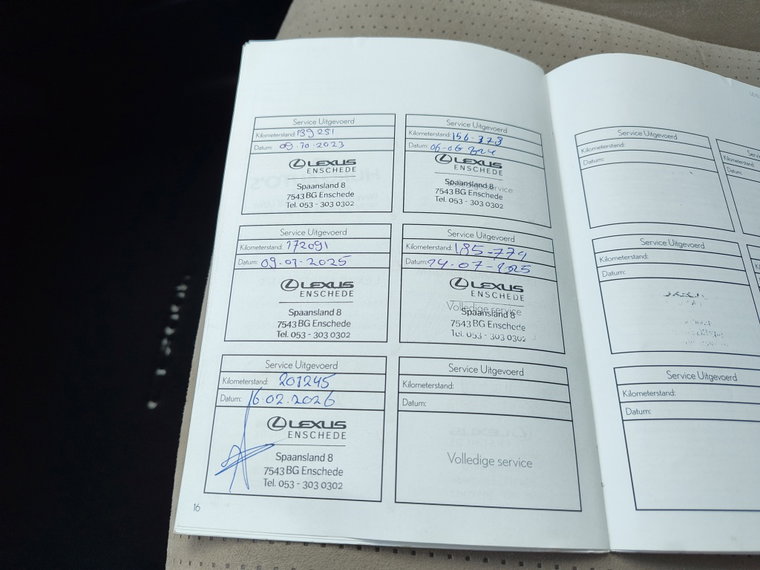 Service Uitgevoerd
Kilometerstand: 139281
Datum: 09-10-2023
LEXUS
ENSCHEDE
Spaansland 8
7543 BG Enschede
Tel. 053 - 303 0302
Service Uitgevoerd
Kilometerstand: 156-373
Datum: 06-06-2024
LEXUS
ENSCHEDE
Spaansland 8
7543 BG Enschede
Tel. 053 - 303 0302
Service Uitgevoerd
Kilometerstand: 172091
Datum: 09-01-2025
LEXUS
ENSCHEDE
Spaansland 8
7543 BG Enschede
Tel. 053 - 303 0302
Service Uitgevoerd
Kilometerstand: 185-774
Datum: 14-07-2025
LEXUS
ENSCHEDE
Volledige service
Spaansland 8
7543 BG Enschede
Tel. 053 - 303 0302
Service Uitgevoerd
Kilometerstand: 201245
Datum: 16.02.2026
LEXUS
ENSCHEDE
Spaansland 8
7543 BG Enschede
Tel. 053 - 303 0302
Service Uitgevoerd
Kilometerstand:
Datum:
Volledige service
16
Service Uitgevoerd
Kilometerstand:
Datum:
Service Uitgevoerd
Kilometerstand:
Datum:
Service Uitgevoerd
Kilometerstand:
Datum: